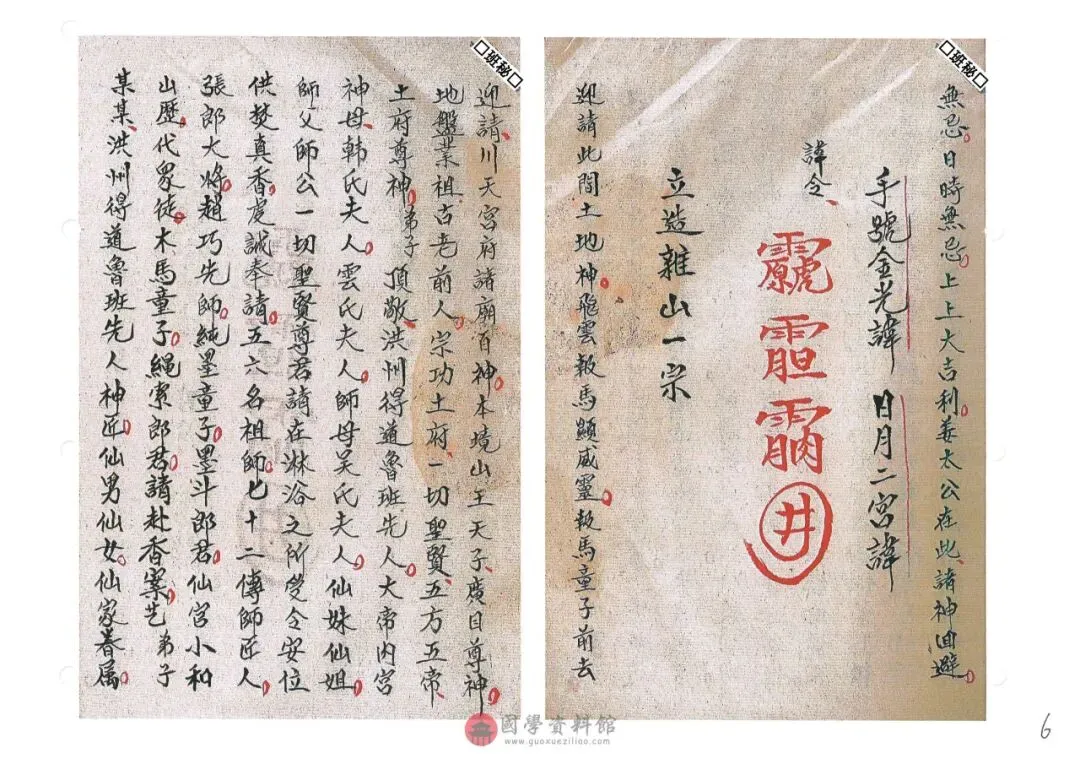 無忌日時無忌上上大吉利姜太公在此諸神回避
手號金光諱 日月二宮諱
諱令
井
立造雜山一宗
迎請此間土地神飛雲報馬顯威靈報馬童子前去
迎請川天宮府諸廟百神本境山王天子廣目尊神
地盤業祖古老前人宗功土府一切聖賢五方五帝
土府尊神弟子頂敬洪州得道魯班先人大帝內宮
神母韓氏夫人雲氏夫人師母吴氏夫人仙妹仙姐
師父師公一切聖賢尊君請在淋浴之所受令安位
供焚真香虔誠奉請五六名祖師七十二傳師匠人
張郎大將趙巧先師純墨童子墨斗郎君仙宮小和
山歷代眾徒木馬童子繩索郎君請赴香案 弟子
某某洪州得道魯班先人神匠仙男仙女仙家眷属
班秘
班秘
國學資料館
www.guoxueziliao.com
6